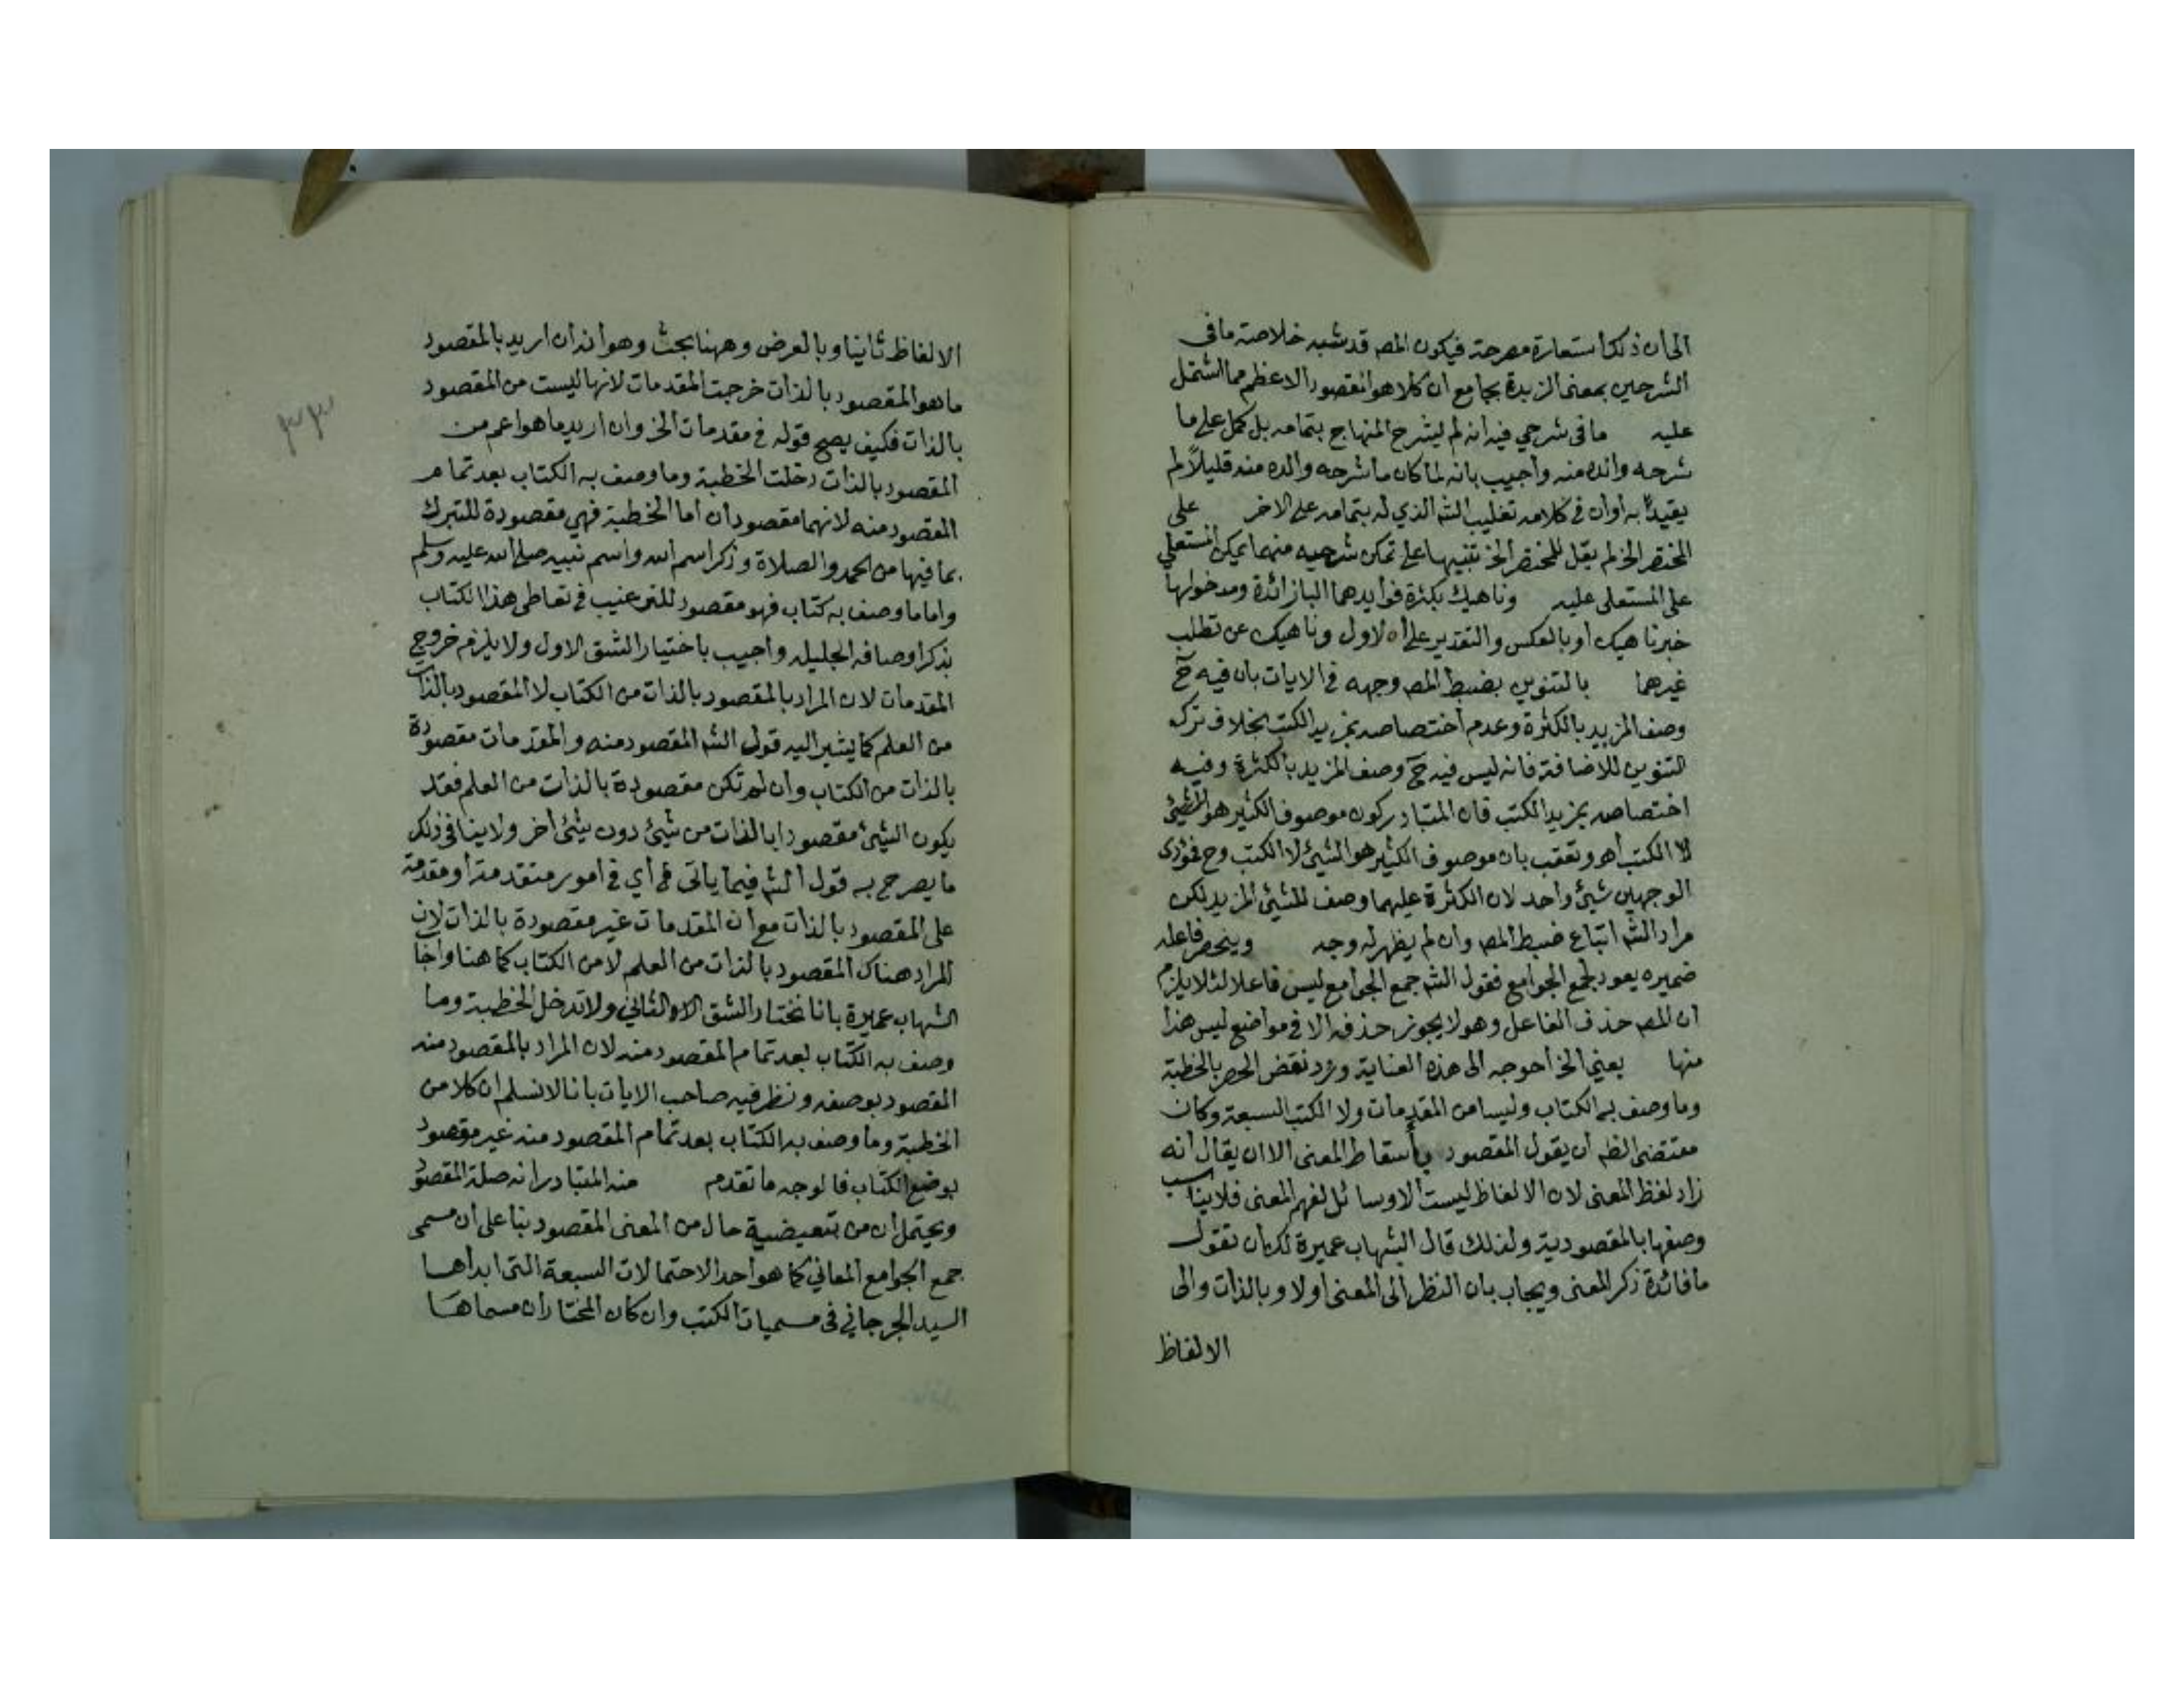 الى ان ذلك استعارة مصرحة فيكون المصـ قد شبه خلاصة ما في
الشرحين بمعنى الزبدة بجامع ان كلا هو المقصود الاعظم مما اشتمل
عليه ما في شرحي فيه انه لم يشرح المنهاج بتمامه بل كمل على ما
شرحه والده منه واجيب بانه لما كان ما شرحه والده منه قليلاً لم
يقيد به او ان في كلامه تغليب الشـ الذي له بتمامه على الاخر على
المختصر الخ لم يقل للمختصر الخ تنبيها على تمكن شرحيه منهما تمكن المستعلي
على المستعلى عليه وناهيك بكثرة فوايدهما الباز ائدة ومدخولها
خبر ناهيك او بالعكس والتقدير على الاول وناهيك عن تطلب
غيرهما بالتنوين بضبط المصـ وجهه في الايات بان فيه حـ
وصف المزيد بالكثرة وعدم اختصاصه بمزيد الكتب بخلاف ترك
التنوين للاضافة فانه ليس فيه حـ وصف المزيد بالكثرة وفيه
اختصاصه بمزيد الكتب فان المتبادر كون موصوف الكثير هو الشيئ
لا الكتب اهـ وتعقب بان موصوف الكثير هو الشيئ لا الكتب وح فمؤدى
الوجهين شيئ واحد لان الكثرة عليهما وصف للشيئ المزيد لكن
مراد الشـ اتباع ضبط المصـ وان لم يظهر له وجه وينحصر فاعله
ضميره يعود لجمع الجوامع فقول الشـ جمع الجوامع ليس فاعلا لئلا يلزم
ان المصـ حذف الفاعل وهو لا يجوز حذفه الا في مواضع ليس هذا
منها يعني الخ احوجه الى هذه العناية ورد نقض الحصر بالخطبة
وما وصف به الكتاب وليسا من المقدمات ولا الكتب السبعة وكان
مقتضى الظـ ان يقول المقصود باسقاط المعنى الا ان يقال انه
زاد لفظ المعنى لان الالفاظ ليست الا وسائل لفهم المعنى فلا يناسب
وصفها بالمقصودية ولذلك قال الشهاب عميرة لك ان تقول
ما فائدة ذكر المعنى ويجاب بان النظر الى المعنى اولا وبالذات والى
الالفاظ
الالفاظ ثانيا وبالعرض وههنا بحث وهو انه ان اريد بالمقصود
ما هو المقصود بالذات خرجت المقدمات لانها ليست من المقصود
بالذات فكيف يصح قوله في مقدمات الخ وان اريد ما هو اعم من
المقصود بالذات دخلت الخطبة وما وصف به الكتاب بعد تمام
المقصود منه لانهما مقصودان أما الخطبة فهي مقصودة للتبرك
بما فيها من الحمد والصلاة وذكر اسم الله واسم نبيه صلى الله عليه وسلم
واما ما وصف به كتاب فهو مقصود للترغيب في تعاطي هذا الكتاب
بذكر اوصافه الجليله واجيب باختيار الشق الاول ولا يلزم خروج
المقدمات لان المراد بالمقصود بالذات من الكتاب لا المقصود بالذات
من العلم كما يشير اليه قول الشـ المقصود منه والمقدمات مقصودة
بالذات من الكتاب وان لم تكن مقصودة بالذات من العلم فقد
يكون الشيئ مقصودا بالذات من شيئ دون شيئ اخر ولا ينافي ذلك
ما يصرح به قول الشـ فيما يأتي في أي في امور متقدمة او مقدمة
على المقصود بالذات مع ان المقدمات غير مقصودة بالذات لان
المراد هناك المقصود بالذات من العلم لا من الكتاب كما هنا واجاب
الشهاب عميرة بانا نختار الشق الثاني ولا تدخل الخطبة وما
وصف به الكتاب بعد تمام المقصود منه لان المراد بالمقصود منه
المقصود بوصفه ونظر فيه صاحب الايات بانا لا نسلم ان كلا من
الخطبة وما وصف به الكتاب بعد تمام المقصود منه غير مقصود
بوضع الكتاب فالوجه ما تقدم منه المتبادر انه صلة المقصود
ويحتمل ان من تبعيضية حال من المعنى المقصود بنا على ان مسمى
جمع الجوامع المعاني كما هو احد الاحتمالات السبعة التى ابداها
السيد الجرجاني في مسميات الكتب وان كان المختار ان مسماها